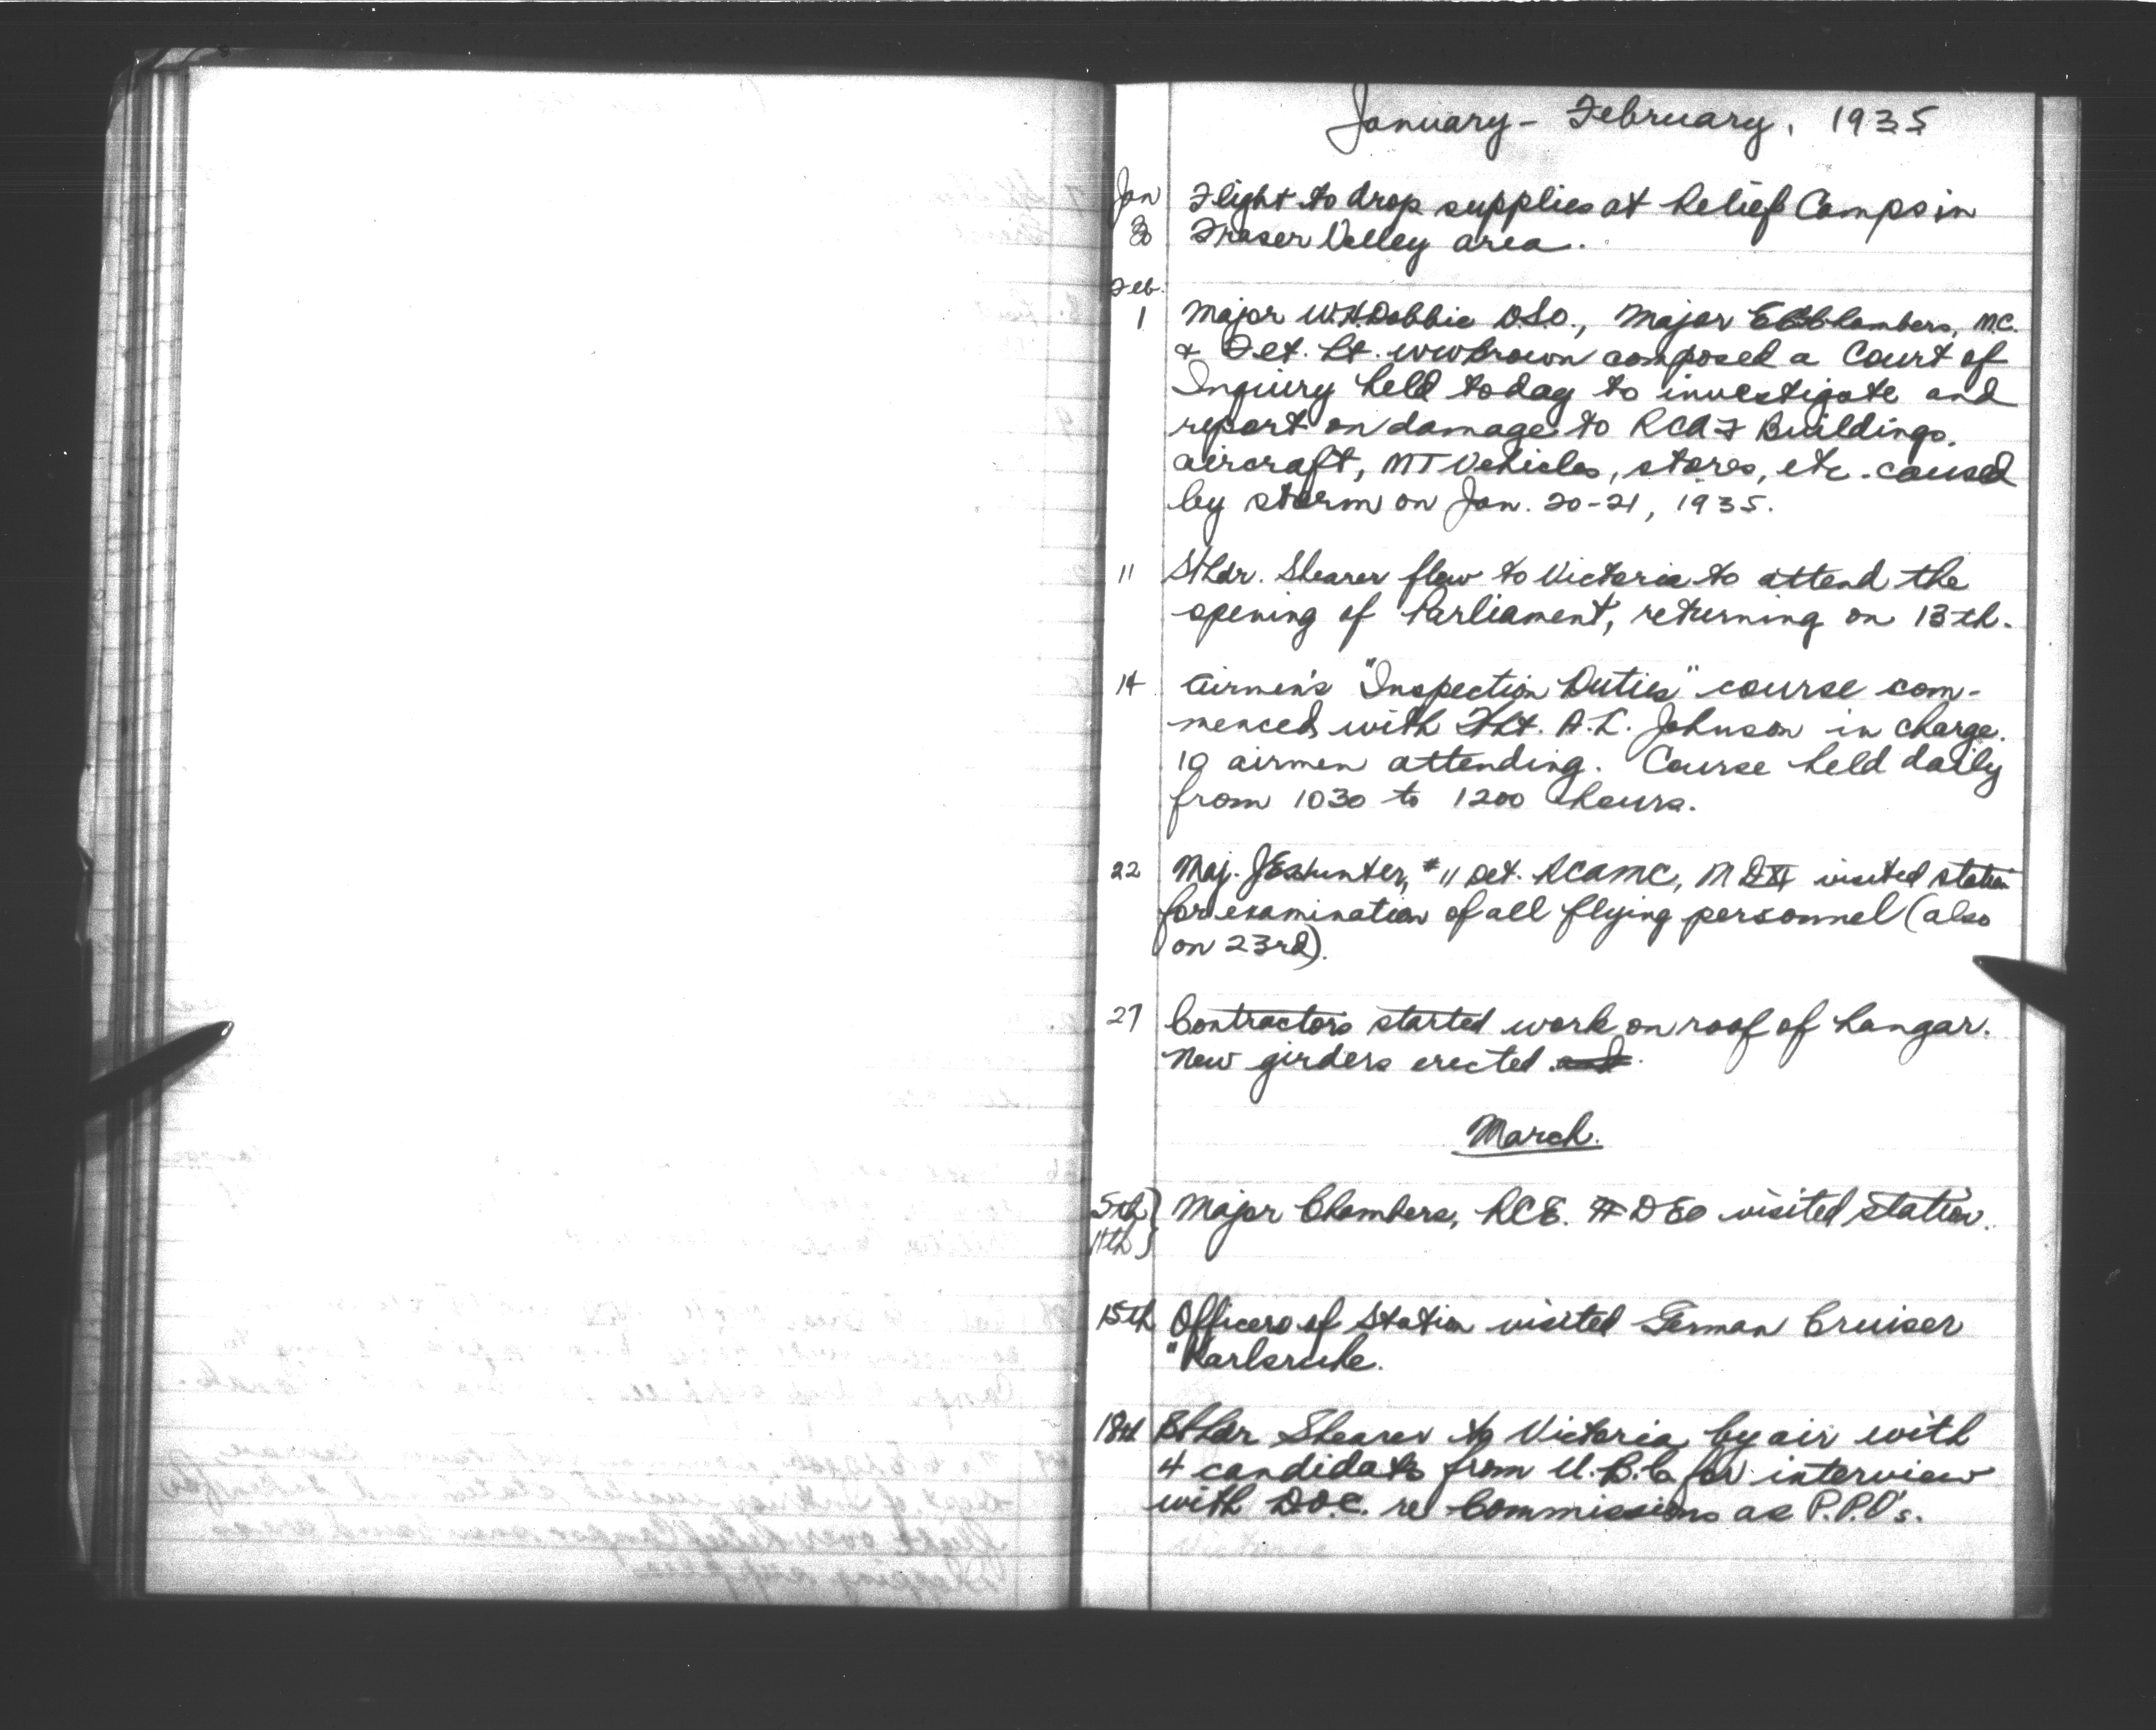 January - February, 1935
Jan Flight to drop supplies at Relief Camps in
30 Fraser Valley area.
Feb.
1 Major W.H. Dobbie D.S.O., Major Chambers, M.C.
& Flt. Lt. WW Brown composed a Court of
Inquiry held today to investigate and
report on damage to RCAF Buildings,
aircraft, MT Vehicles, stores, etc. caused
by storm on Jan. 20-21, 1935.
11 S/Ldr. Shearer flew to Victoria to attend the
opening of Parliament, returning on 13th.
14 Airmen's "Inspection Duties" course com-
menced with F/Lt. A.L. Johnson in charge.
10 airmen attending. Course held daily
from 1030 to 1200 hours.
22 Maj. Hunter, #11 Det. RCAMC, MD XI visited station
for examination of all flying personnel (also
on 23rd).
27 Contractors started work on roof of hangar.
New girders erected
March.
5th } Major Chambers, RCE. DEO visited station.
11th }
15th Officers of Station visited German Cruiser
"Karlsruhe.
18th S/Ldr Shearer to Victoria by air with
4 candidats from U.B.C for interview
with D.O.C. re Commissions as P.P.O's.
Victoria